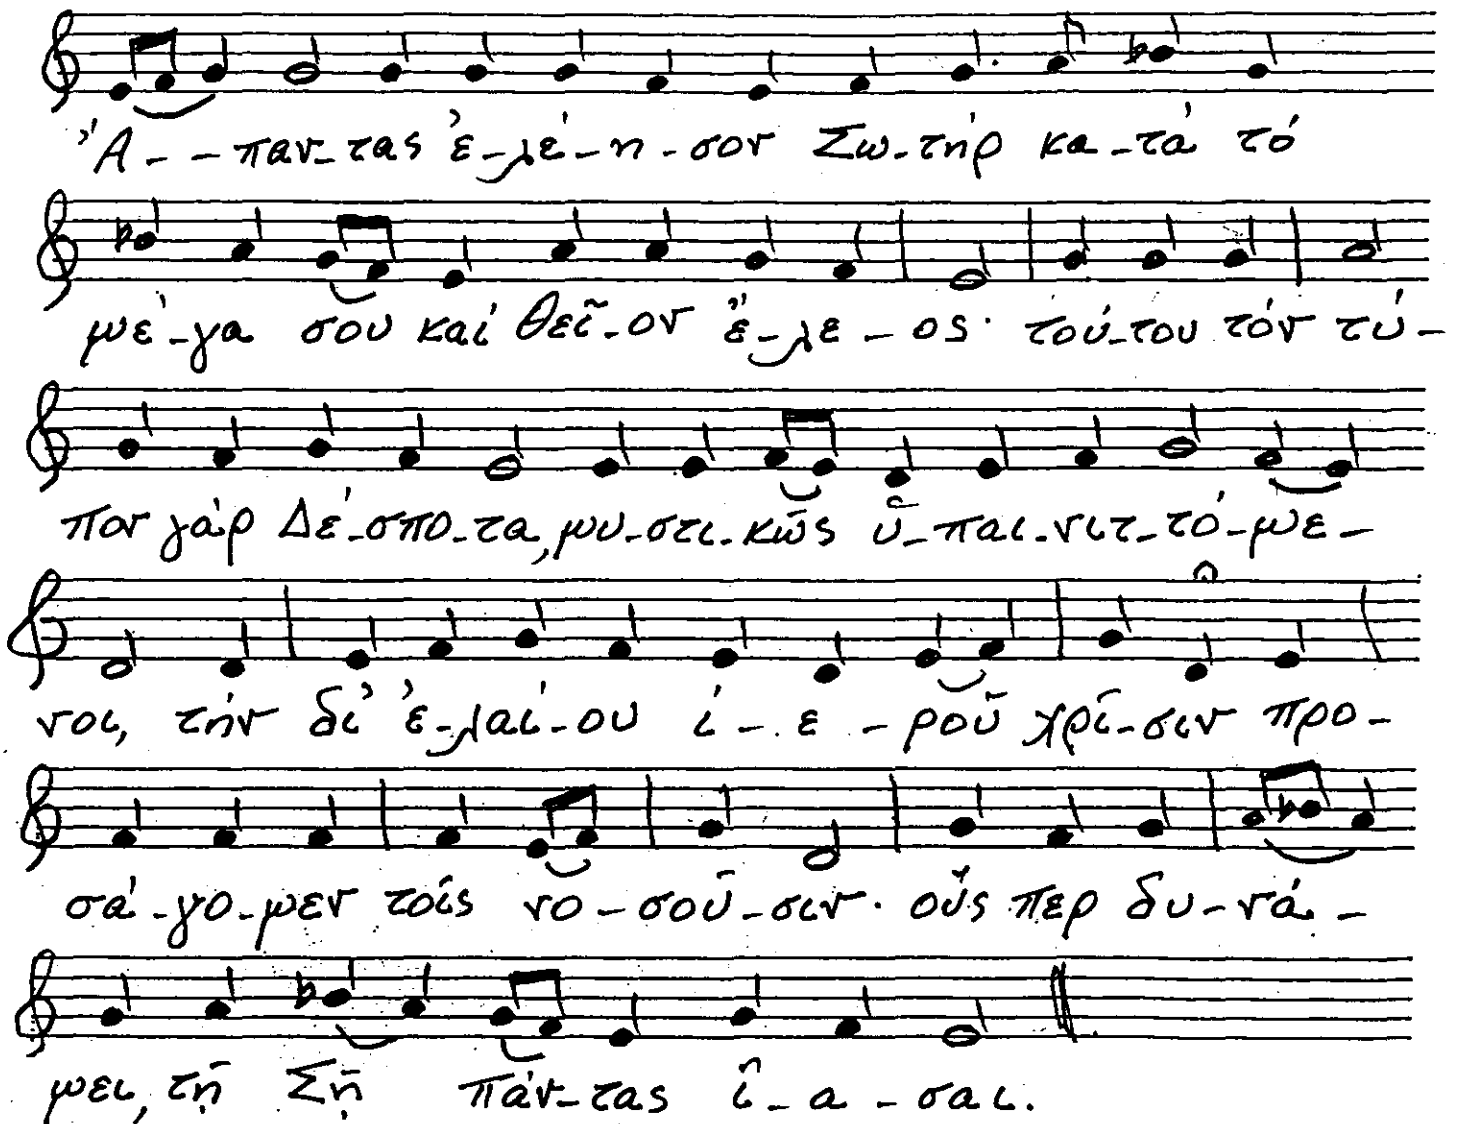 Ἅ - - παν - τας ἐ - λέ - η - σον Σω - τήρ κα - τά τό
μέ - γα σου καί θεῖ - ον ἔ - λε - ος· τού - του τόν τύ -
πον γάρ Δέ - σπο - τα, μυ - στι - κῶς ὑ - παι - νιτ - τό - με -
νοι, τήν δι' ἐ - λαί - ου ἱ - ε - ροῦ χρῖ - σιν προ -
σά - γο - μεν τοῖς νο - σοῦ - σιν· οὕς περ δυ - νά -
μει, τῇ Σῇ πάν - τας ἴ - α - σαι.